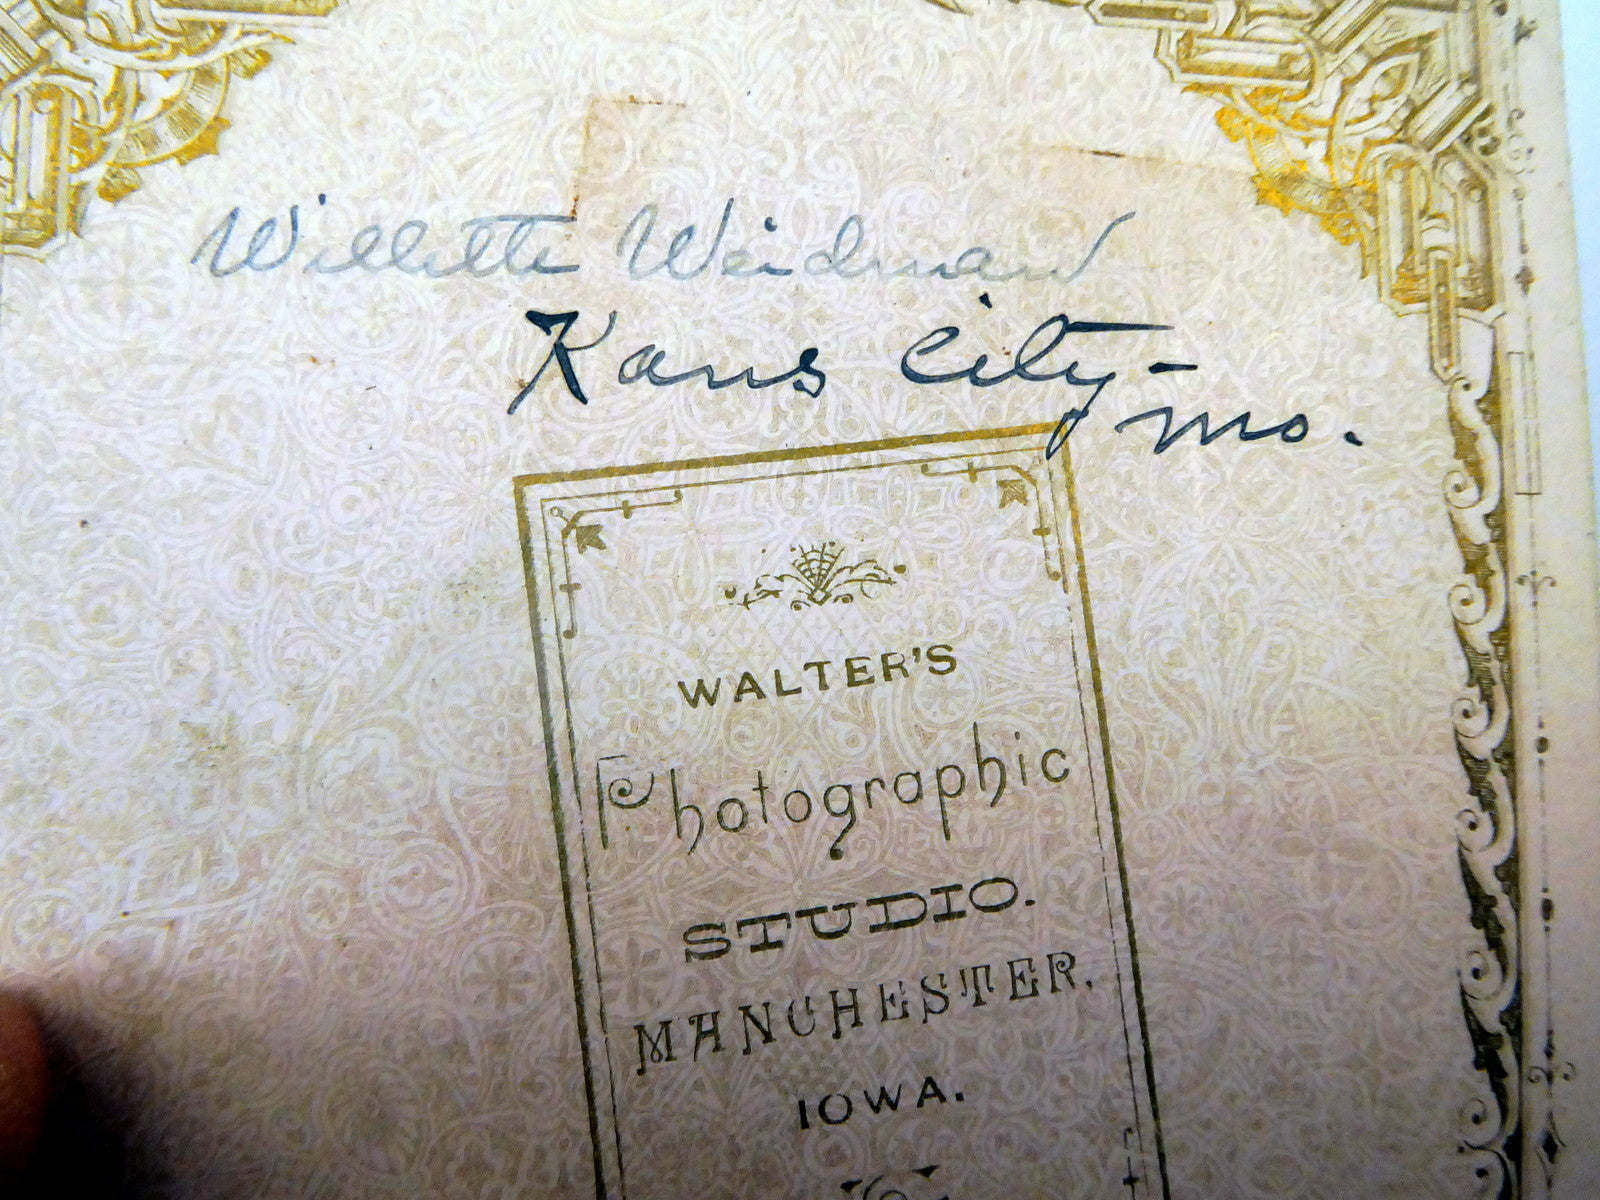 Willette Weidman
Kans City -
Mo.
WALTER'S
Photographic
STUDIO.
MANCHESTER.
IOWA.